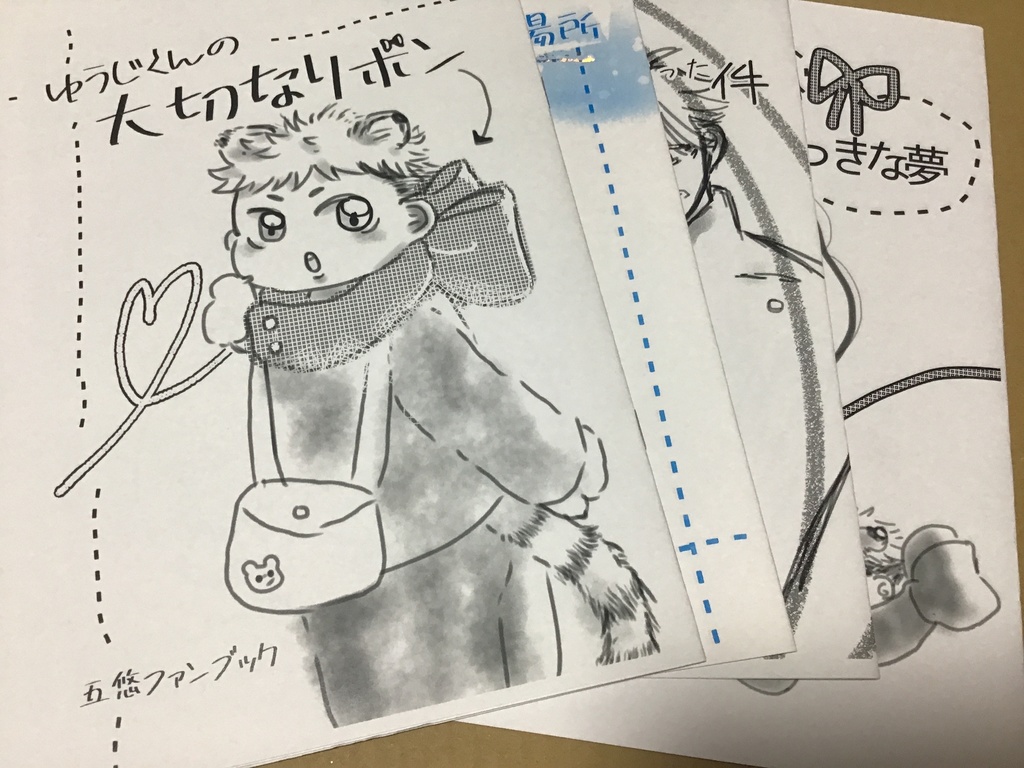 ゆうじくんの
大切なリボン
五悠ファンブック
場所
った件
っきな夢